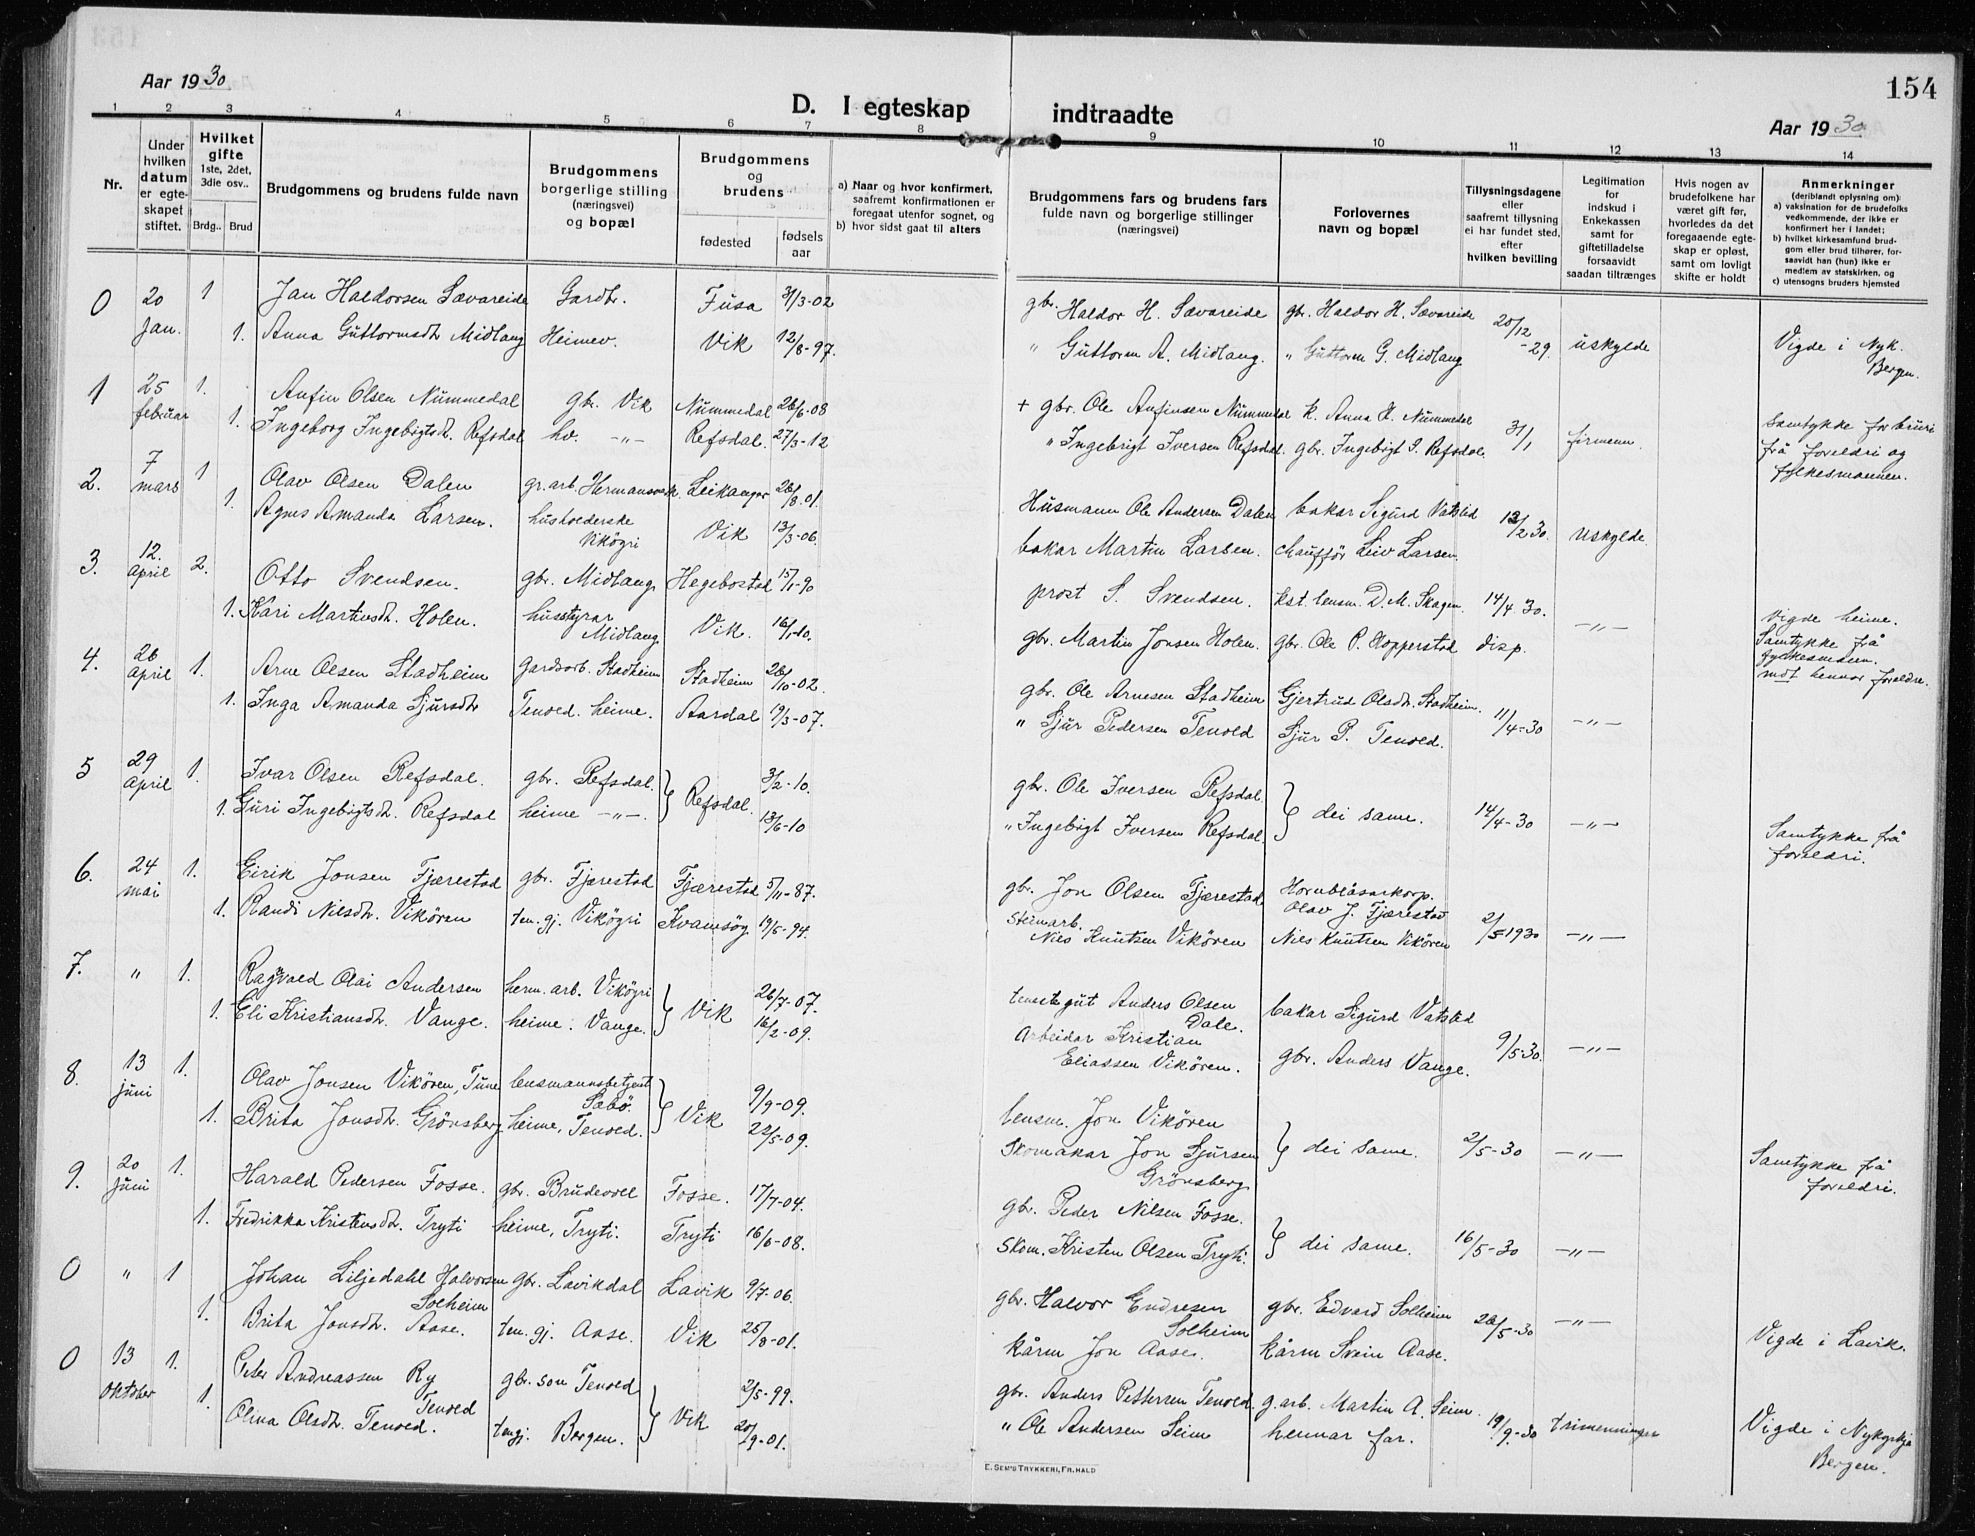 154
Aar 1930
D. I egteskap indtraadte
Aar 1930
1 2 3 4 5 6 7 8 9 10 11 12 13 14
Nr.
Under hvilken datum er egte-skapet stiftet.
Hvilket gifte 1ste, 2det, 3die osv..
Brdg.. Brud
Brudgommens og brudens fulde navn
Brudgommens borgerlige stilling (næringsvei) og bopæl
Brudgommens og brudens
fødested
fødsels aar
a) Naar og hvor konfirmert, saafremt konfirmationen er foregaat utenfor sognet, og
b) hvor sidst gaat til alters
Brudgommens fars og brudens fars fulde navn og borgerlige stillinger (næringsvei)
Forlovernes navn og bopæl
Tillysningsdagene eller saafremt tillysning ei har fundet sted, efter hvilken bevilling
Legitimation for indskud i Enkekassen samt for giftetilladelse forsaavidt saadan tiltrænges
Hvis nogen av brudefolkene har været gift før, hvorledes da det foregaaende egte-skap er opløst, samt om lovligt skifte er holdt
Anmerkninger (deriblandt oplysning om):
a) vaksination for de brudefolks vedkommende, der ikke er konfirmert her i landet;
b) hvilket kirkesamfund brud-gom eller brud tilhører, for-saavidt han (hun) ikke er medlem av statskirken, og
c) utensogns bruders hjemsted
0 20 Jan. 1 Jan Haldorsen Sævareide Gardbr. Fusa 31/3-02 gbr. Haldor H. Sævareide gbr. Haldor H. Sævareide 20/12-29 uskylde Vigde i Nyk. Bergen.
1. Anna Guttormsdtr Midlang Heimev. Vik 12/8-97. " Guttorm A. Midlang. " Guttorm G. Midlang
1 25 februar 1. Anfin Olsen Nummedal gbr. Vik Nummedal 26/6-08 + gbr. Ole Anfinsen Nummedal k. Anna H. Nummedal 31/1 firmenn. Samtykke for bruri frå foreldri og fylkesmannen.
1. Ingeborg Ingebrigtsdt. Refsdal hv. -"- Refsdal. 27/3-12 " Ingebrigt Iversen Refsdal. gbr. Ingebrigt I. Refsdal.
2. 7 mars 1 Olav Olsen Dalen gr.arb. Hermansverk Leikanger 26/8.01. Husmann Ole Andersen Dalen bakar Sigurd Vatslid 12/2 30. Uskylde.
1. Agnes Amanda Larsen. Vikøyri Vik 13/3-06. bakar Martin Larsen. chauffør Leiv Larsen.
3. 12. April 2. Otto Svendsen. gbr. Midlang Hegebostad 15/1-90 prost S. Svendsen. kst. lensm. D. M. Skagen. 14/4 30. -"- Vigde heime. Samtykke frå fylkesmann. mot hennar foreldre.
1. Kari Martinsdt. Holen. husstyrar Midlang Vik. 16/1-10. gbr. Martin Jonsen Holen. gbr. Ole P. Hopperstad disp.
4. 26 April 1. Arne Olsen Stadheim Gardsarb. Stadheim Stadheim 26/10-02. gbr. Ole Arnesen Stadheim Gjertrud Olsdt. Stadheim. 11/4-30 -"-
1. Inga Amanda Sjursdtr Tenold. heime. Aardal 19/3-07. " Sjur Pedersen Tenold Sjur P. Tenold.
5 29 April 1. Ivar Olsen Refsdal. gbr. Refsdal. Refsdal. 3/2-10. gbr. Ole Iversen Refsdal. dei same. 14/4-30 -"- Samtykke frå foreldri.
1. Guri Ingebrigtsdt. Refsdal heime -"-. 13/6-10 " Ingebrigt Iversen Refsdal.
6. 24 mai 1. Eirik Jonsen Fjærestad gbr. Fjærestad Fjærestad 5/11-87. gbr. Jon Olsen Fjærestad Hornblåsarkorp. Olav J. Fjærestad 2/5-1930 -"-
1. Randi Nilsdt. Vikøren ten. gj. Vikøyri Kvamsøy 19/5-94. Steinarb. Nils Knutsen Vikøren Nils Knutsen Vikøren
7. " 1. Ragvald Olai Andersen herm. arb. Vikøyri Vik 26/7-07. Anders Olsen Dale. bakar Sigurd Vatslid 9/5-30. -"-
1. Eli Kristiansdt. Vange. heime. Vange. 16/2-09. Arbeidar Kristian Eliassen Vikøren. gbr. Anders Vange.
8. 13 juni 1. Olav Jonsen Vikøren, Tune lensmannsbetjent Sæbø. Vik 9/9-09. lensm. Jon Vikøren dei same. 2/5-30 -"- Samtykke frå foreldri.
1. Brita Jonsdt. Grønsberg heime, Tenold. 22/5-09. Skomakar Jon Sjursen Grønsberg
9. 20 juni 1. Harald Pedersen Fosse. gbr. Brudevoll Fosse. 17/7-04. gbr. Peder Nilsen Fosse. dei same. 16/5-30 -"-
1. Fredrikka Kristensdt. Tryti heime, Tryti. Tryti 16/6-08. Skom. Kristen Olsen Tryti.
0 " 1 Johan Liljedahl Halvorsen Solheim gbr. Lavikdal Lavik 9/7-06. gbr. Halvor Endresen Solheim gbr. Edvard Solheim 26/5-30 -"- Vigde i Lavik.
1. Brita Jonsdt. Aase. ten. gj. Aase. Vik 25/8-01. kårm Jon Aase. kårm Svein Aase.
0 13 oktober 1. Peter Andreassen Ry Tenold gbr. son Tenold Vik 2/5-99. gbr. Anders Pettersen Tenold. g.arb. Martin A. Seim. 19/9-30 trimenninger Vigde i Nykyrkja Bergen.
1. Olina Olsdt. Tenold. tenj. Bergen. 20/9-01. " Ole Andersen Seim hennar far.
E. SEM'S TRYKKERI, FR. HALD